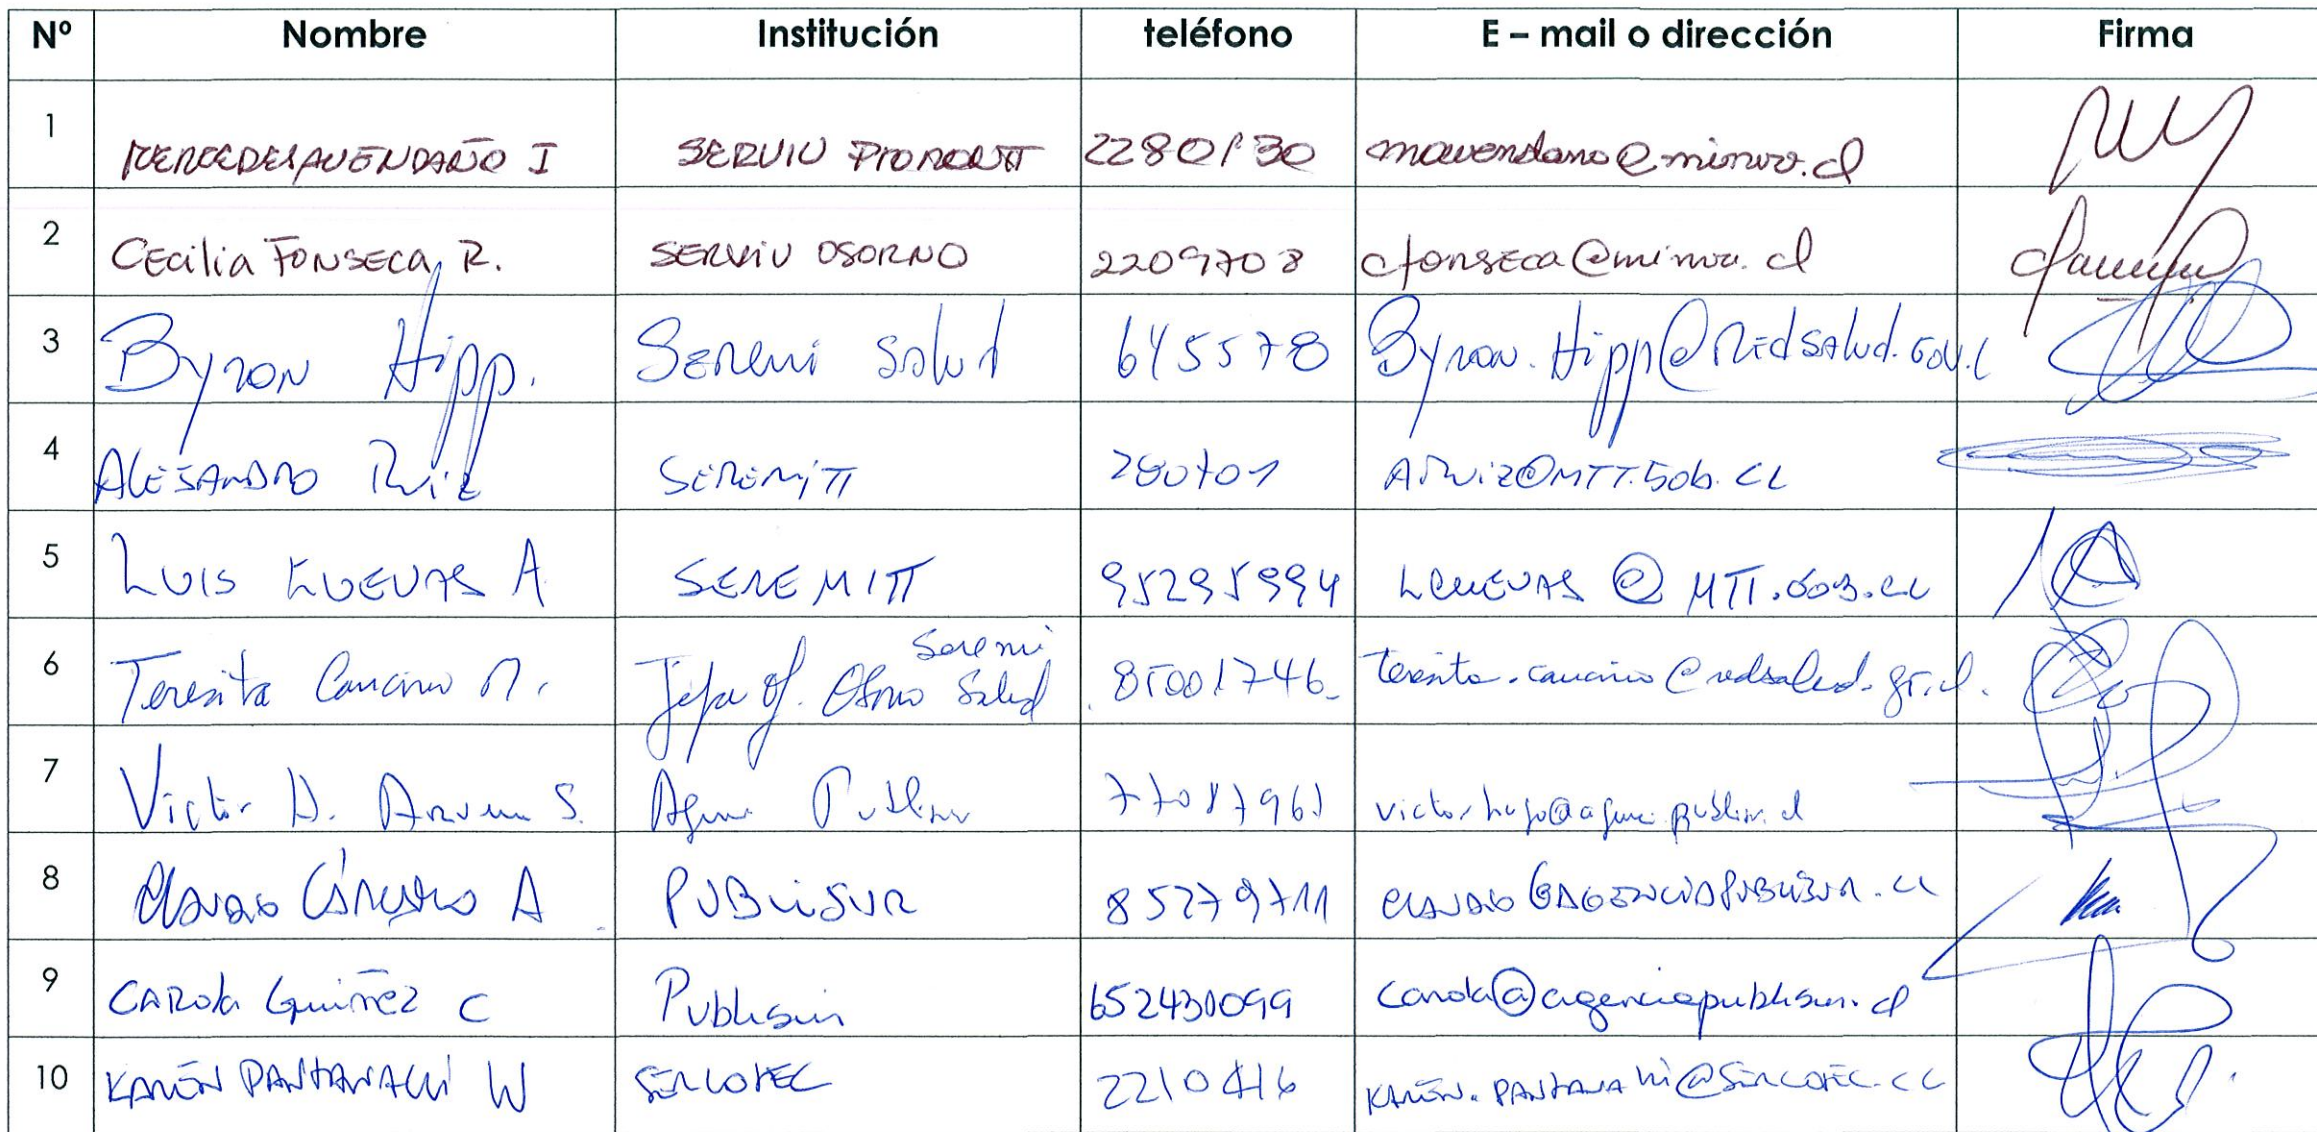 Nº Nombre Institución teléfono E – mail o dirección Firma
1 MERCEDES AVENDAÑO I SERVIU PTO MONTT 2280130 mavendano@minvu.cl
2 CECilia FONSECA R. SERVIU OSORNO 2209708 cfonseca@minvu.cl
3 Byron Hipp. Seremi Salud 645578 Byron.Hipp@redsalud.gov.c
4 ALESANDRO Ruiz SEREMITT 280701 ARuiz@MTT.gob.CL
5 LUIS KUEVAS A SEREMITT 95295994 LCUEVAS@MTT.GOB.CL
6 Teresita Cancino M. Jefa of. Osorno Seremi Salud 85001746 teresita.cancino@redsalud.gov.cl.
7 Victor H. S. 77087961
8 A PUBLiSUR 85279711 CLAUDIO@AGENCIAPUBLISUR.CL
9 CAROLA Guiñez C Publisur 652430099 carola@agenciapublisur.cl
10 KAREN W SERCOTEC 2210416